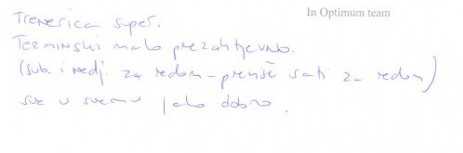 In Optimum team
Trenerica super.
Terminski malo prezahtjevno.
(sub. i nedj. za redom - previše sati za redom)
sve u svemu jako dobro.